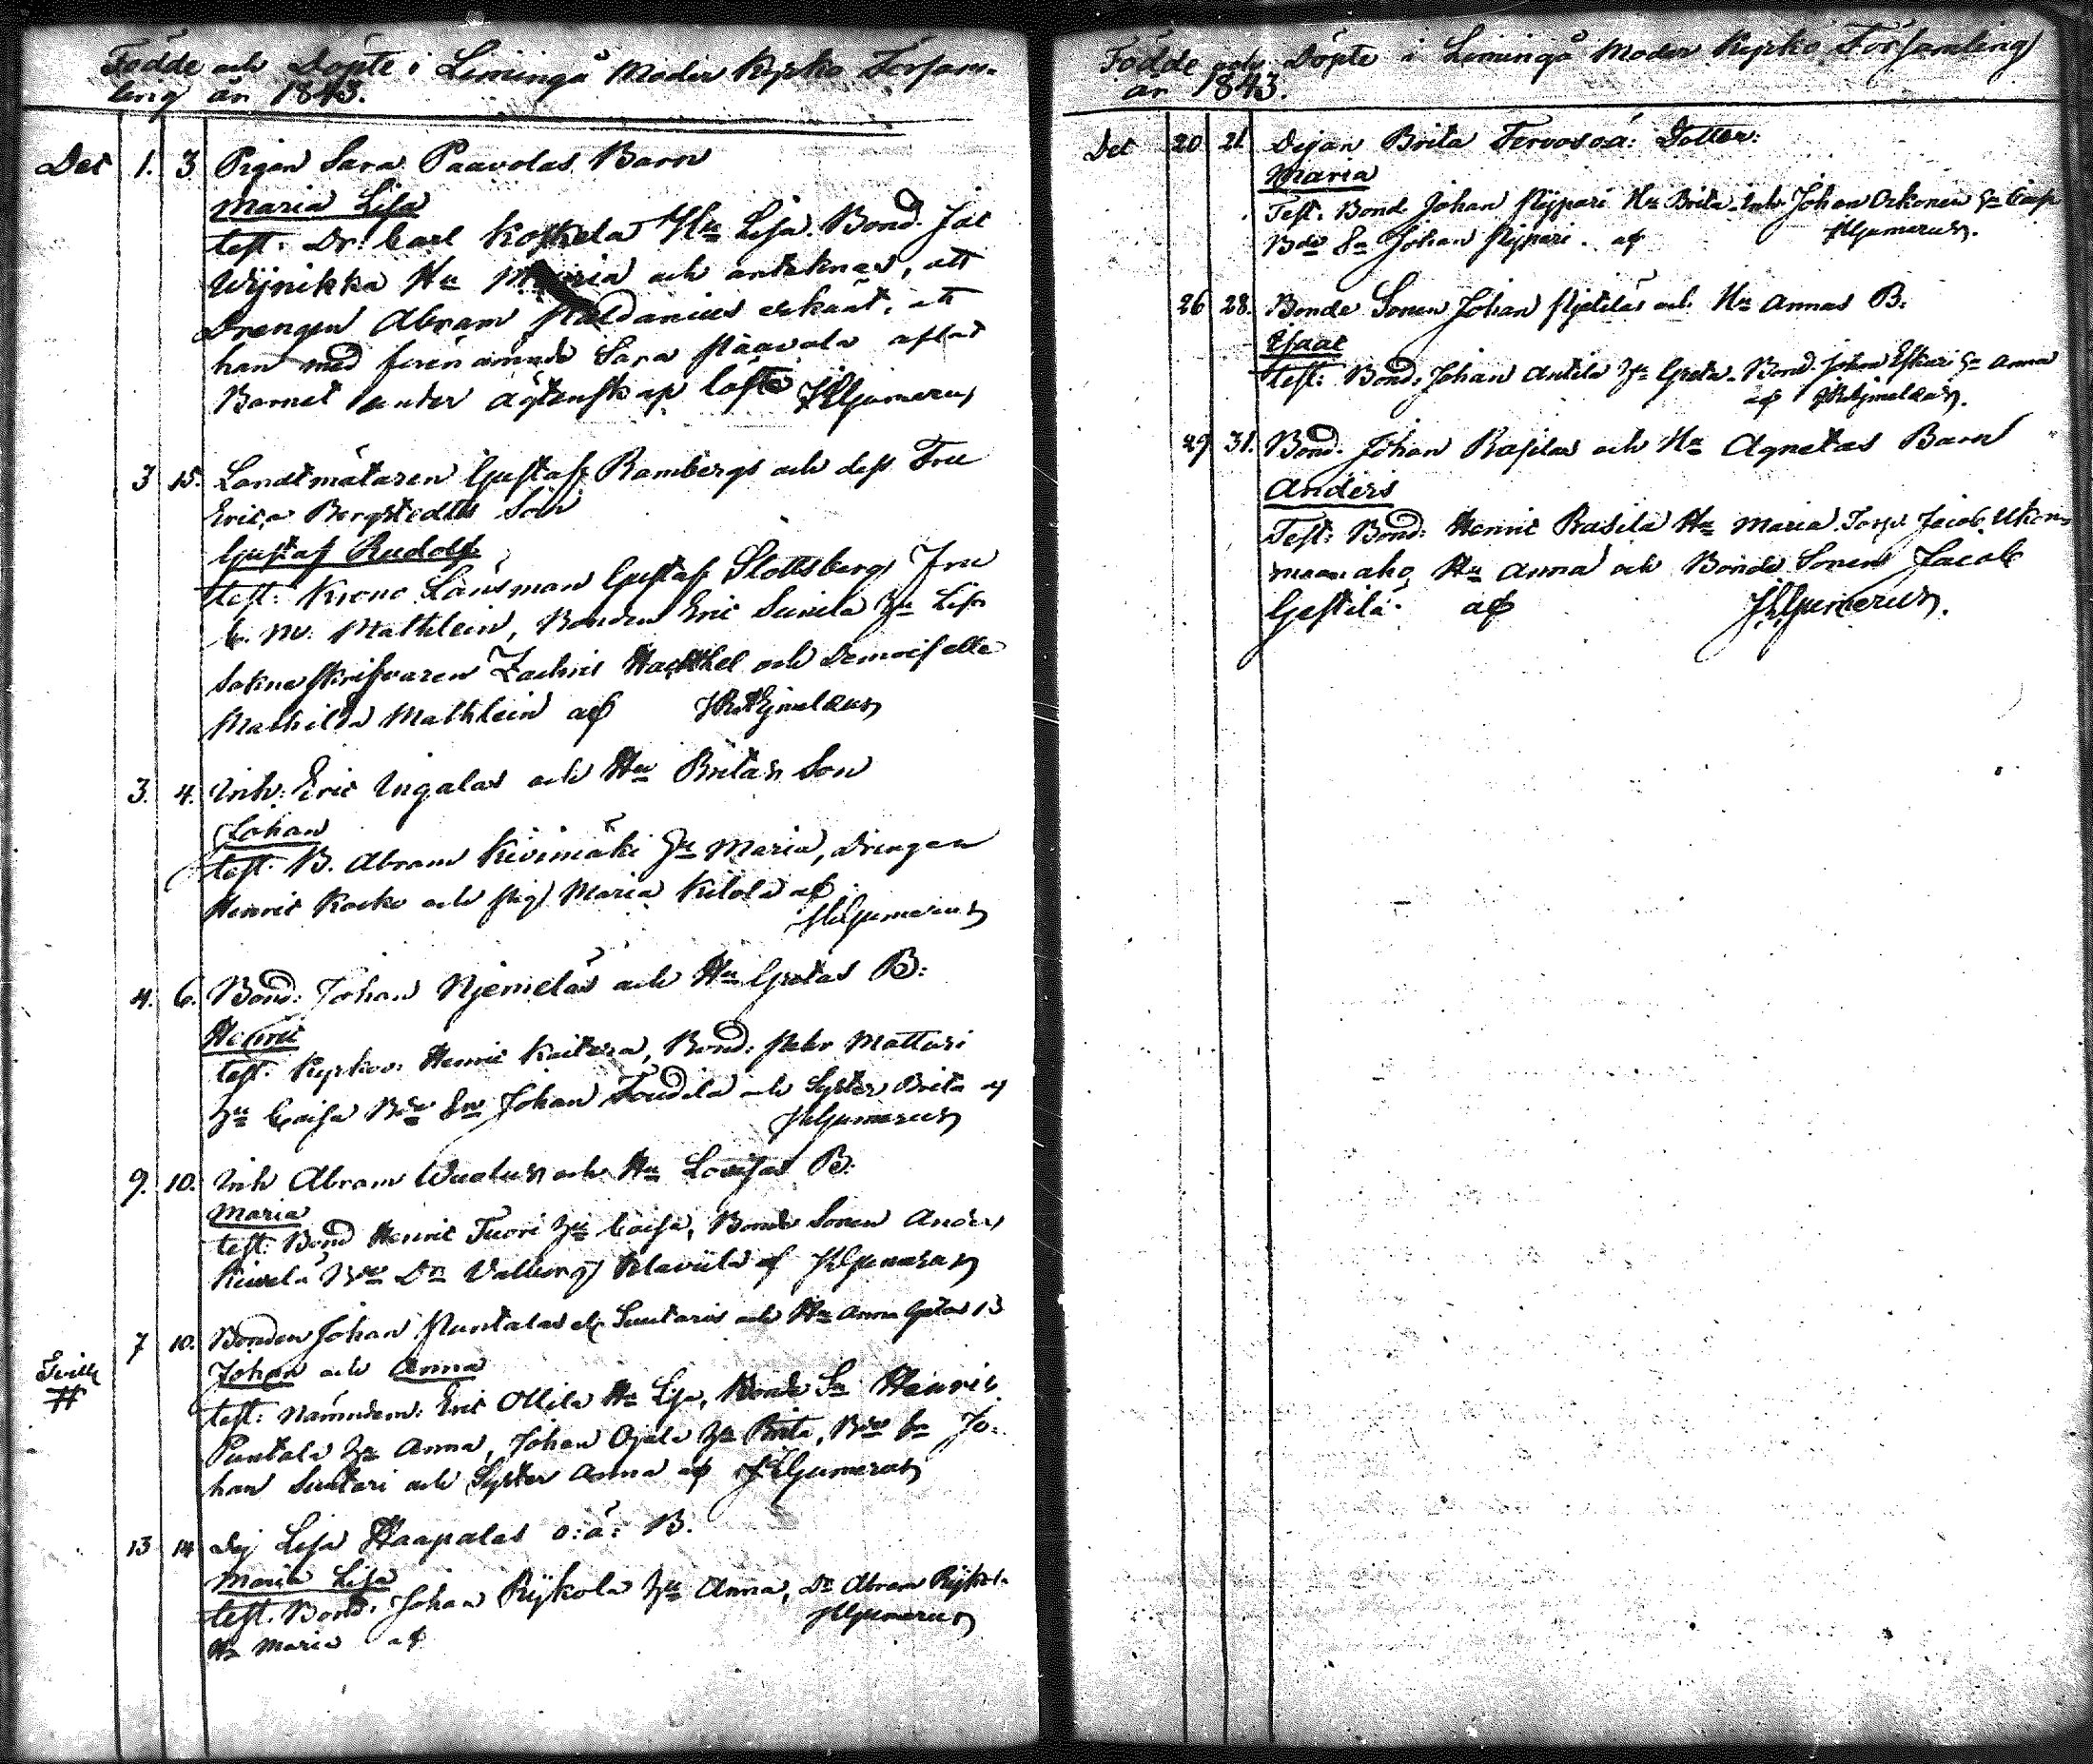 Födde och Döpte i Limingå Moder Kyrko Försam-
ling år 1843.
Dec 1. 3 Pigan Sara Paavolas Barn
Maria Lisa
test: Dr: Carl Koskela Hu Lisa. Bond. Jac
Wijnikka Hu Maria och antecknas, att
Drengen Abram erkänt, att
han med förenämnde Sara Paavola aflat
Barnet under ägtenskaps löfte JEGumerus
3 15. Landtmätaren Gustaf Rambergs och dess Fru
Erica Bergstedts Son
Gustaf Rudolf
test: Krono Länsman Gustaf Slottsberg, Fru
C. M. Mathlein, Bonden Eric Sunila Hu Lisa
Sokneskrifvaren Zachris och Demoiselle
Mathilda Mathlein af
3. 4. Inh: Eric Ingalas och Hu Britas Son
Johan
test. B. Abram Kivimäki Hu Maria, Drengen
Henric Kocko och Pig Maria Kilola af
JEGumerus
4. 6. Bond: Johan Njemeläs och Hu Gretas B:
Henric
test. Kyrkov: Henric Kaitera, Bond: Pehr Mattari
Hu Caisa Bde Sn Johan Toudila och Syster Brita af
JEGumerus
9. 10. Inh Abram och Hu Lovisas B:
Maria
test: Bond Henric Tuori Hu Caisa, Bonde Sonen Anders
Kiuvelä Bde Dr Valborg af JEGumerus
7 10. Bonden Johan Puntalas el. Suutaris och Hu Anna Gretas B
Tvill
#
Johan och Anna
test: Nämndem: Eric Ollila Hu Lisa, Bonde Sn Henric
Puntala Hu Anna, Johan Ojala Hu Brita, Bde Sn Jo-
han Suutari och Syster Anna af JEGumerus
13 14 Dej Lisa Haapalas o: ä: B.
Maria Lisa
test. Bond. Johan Rijkola Hu Anna, Dr Abram Rijkola
Hu Maria af JEGumerus
Födde och Döpte i Limingå Moder Kyrko Församling
år 1843.
Dec 20 21 Dejan Brita Tervos oä: Dotter:
Maria
Test: Bond Johan Pijpari Hu Brita. Inh: Johan Arkonen Hu Caisa
Bde Sn Johan Pijpari. af JEGumerus.
26 28. Bonde Sonen Johan Pijetiläs och Hu Annas B:
Isaac
test: Bond. Johan Antila Hu Greta. Bond. Johan Eskari Hu Anna
af
29 31. Bond. Johan Rasilas och Hu Agnetas Barn
Anders
Test: Bond: Henric Rasila Hu Maria. Torp. Jacob Ukon-
maanaho Hu Anna och Bonde Sonen Jacob
Gestilä. af JEGumerus.